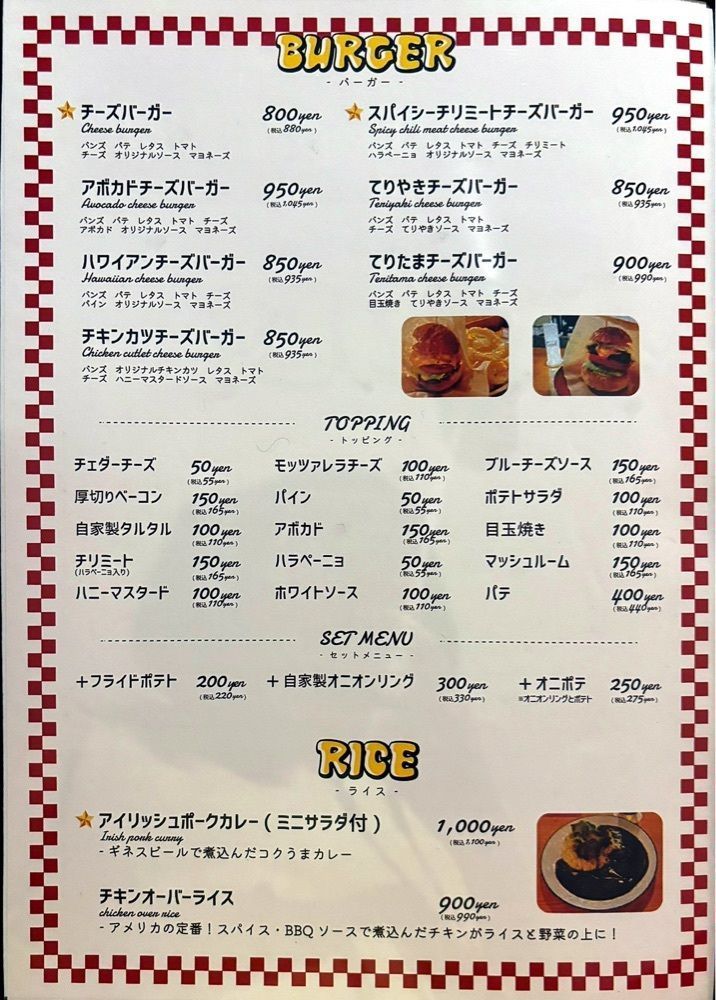 BURGER
- バーガー -
チーズバーガー 800yen
Cheese burger (税込880yen)
バンズ パテ レタス トマト
チーズ オリジナルソース マヨネーズ
スパイシーチリミートチーズバーガー 950yen
Spicy chili meat cheese burger (税込1,045yen)
バンズ パテ レタス トマト チーズ チリミート
ハラペーニョ オリジナルソース マヨネーズ
アボカドチーズバーガー 950yen
Avocado cheese burger (税込1,045yen)
バンズ パテ レタス トマト チーズ
アボカド オリジナルソース マヨネーズ
てりやきチーズバーガー 850yen
Teriyaki cheese burger (税込935yen)
バンズ パテ レタス トマト
チーズ てりやきソース マヨネーズ
ハワイアンチーズバーガー 850yen
Hawaiian cheese burger (税込935yen)
バンズ パテ レタス トマト チーズ
パイン オリジナルソース マヨネーズ
てりたまチーズバーガー 900yen
Teritama cheese burger (税込990yen)
バンズ パテ レタス トマト チーズ
目玉焼き てりやきソース マヨネーズ
チキンカツチーズバーガー 850yen
Chicken cutlet cheese burger (税込935yen)
バンズ オリジナルチキンカツ レタス トマト
チーズ ハニーマスタードソース マヨネーズ
TOPPING
- トッピング -
チェダーチーズ 50yen (税込55yen)
モッツァレラチーズ 100yen (税込110yen)
ブルーチーズソース 150yen (税込165yen)
厚切りベーコン 150yen (税込165yen)
パイン 50yen (税込55yen)
ポテトサラダ 100yen (税込110yen)
自家製タルタル 100yen (税込110yen)
アボカド 150yen (税込165yen)
目玉焼き 100yen (税込110yen)
チリミート 150yen
(ハラペーニョ入り) (税込165yen)
ハラペーニョ 50yen (税込55yen)
マッシュルーム 150yen (税込165yen)
ハニーマスタード 100yen (税込110yen)
ホワイトソース 100yen (税込110yen)
パテ 400yen (税込440yen)
SET MENU
- セットメニュー -
＋フライドポテト 200yen (税込220yen)
＋自家製オニオンリング 300yen (税込330yen)
＋オニポテ 250yen
※オニオンリングとポテト (税込275yen)
RICE
- ライス -
アイリッシュポークカレー ( ミニサラダ付 ) 1,000yen
Irish pork curry (税込1,100yen)
- ギネスビールで煮込んだコクうまカレー
チキンオーバーライス 900yen
chicken over rice (税込990yen)
- アメリカの定番！スパイス・BBQ ソースで煮込んだチキンがライスと野菜の上に！